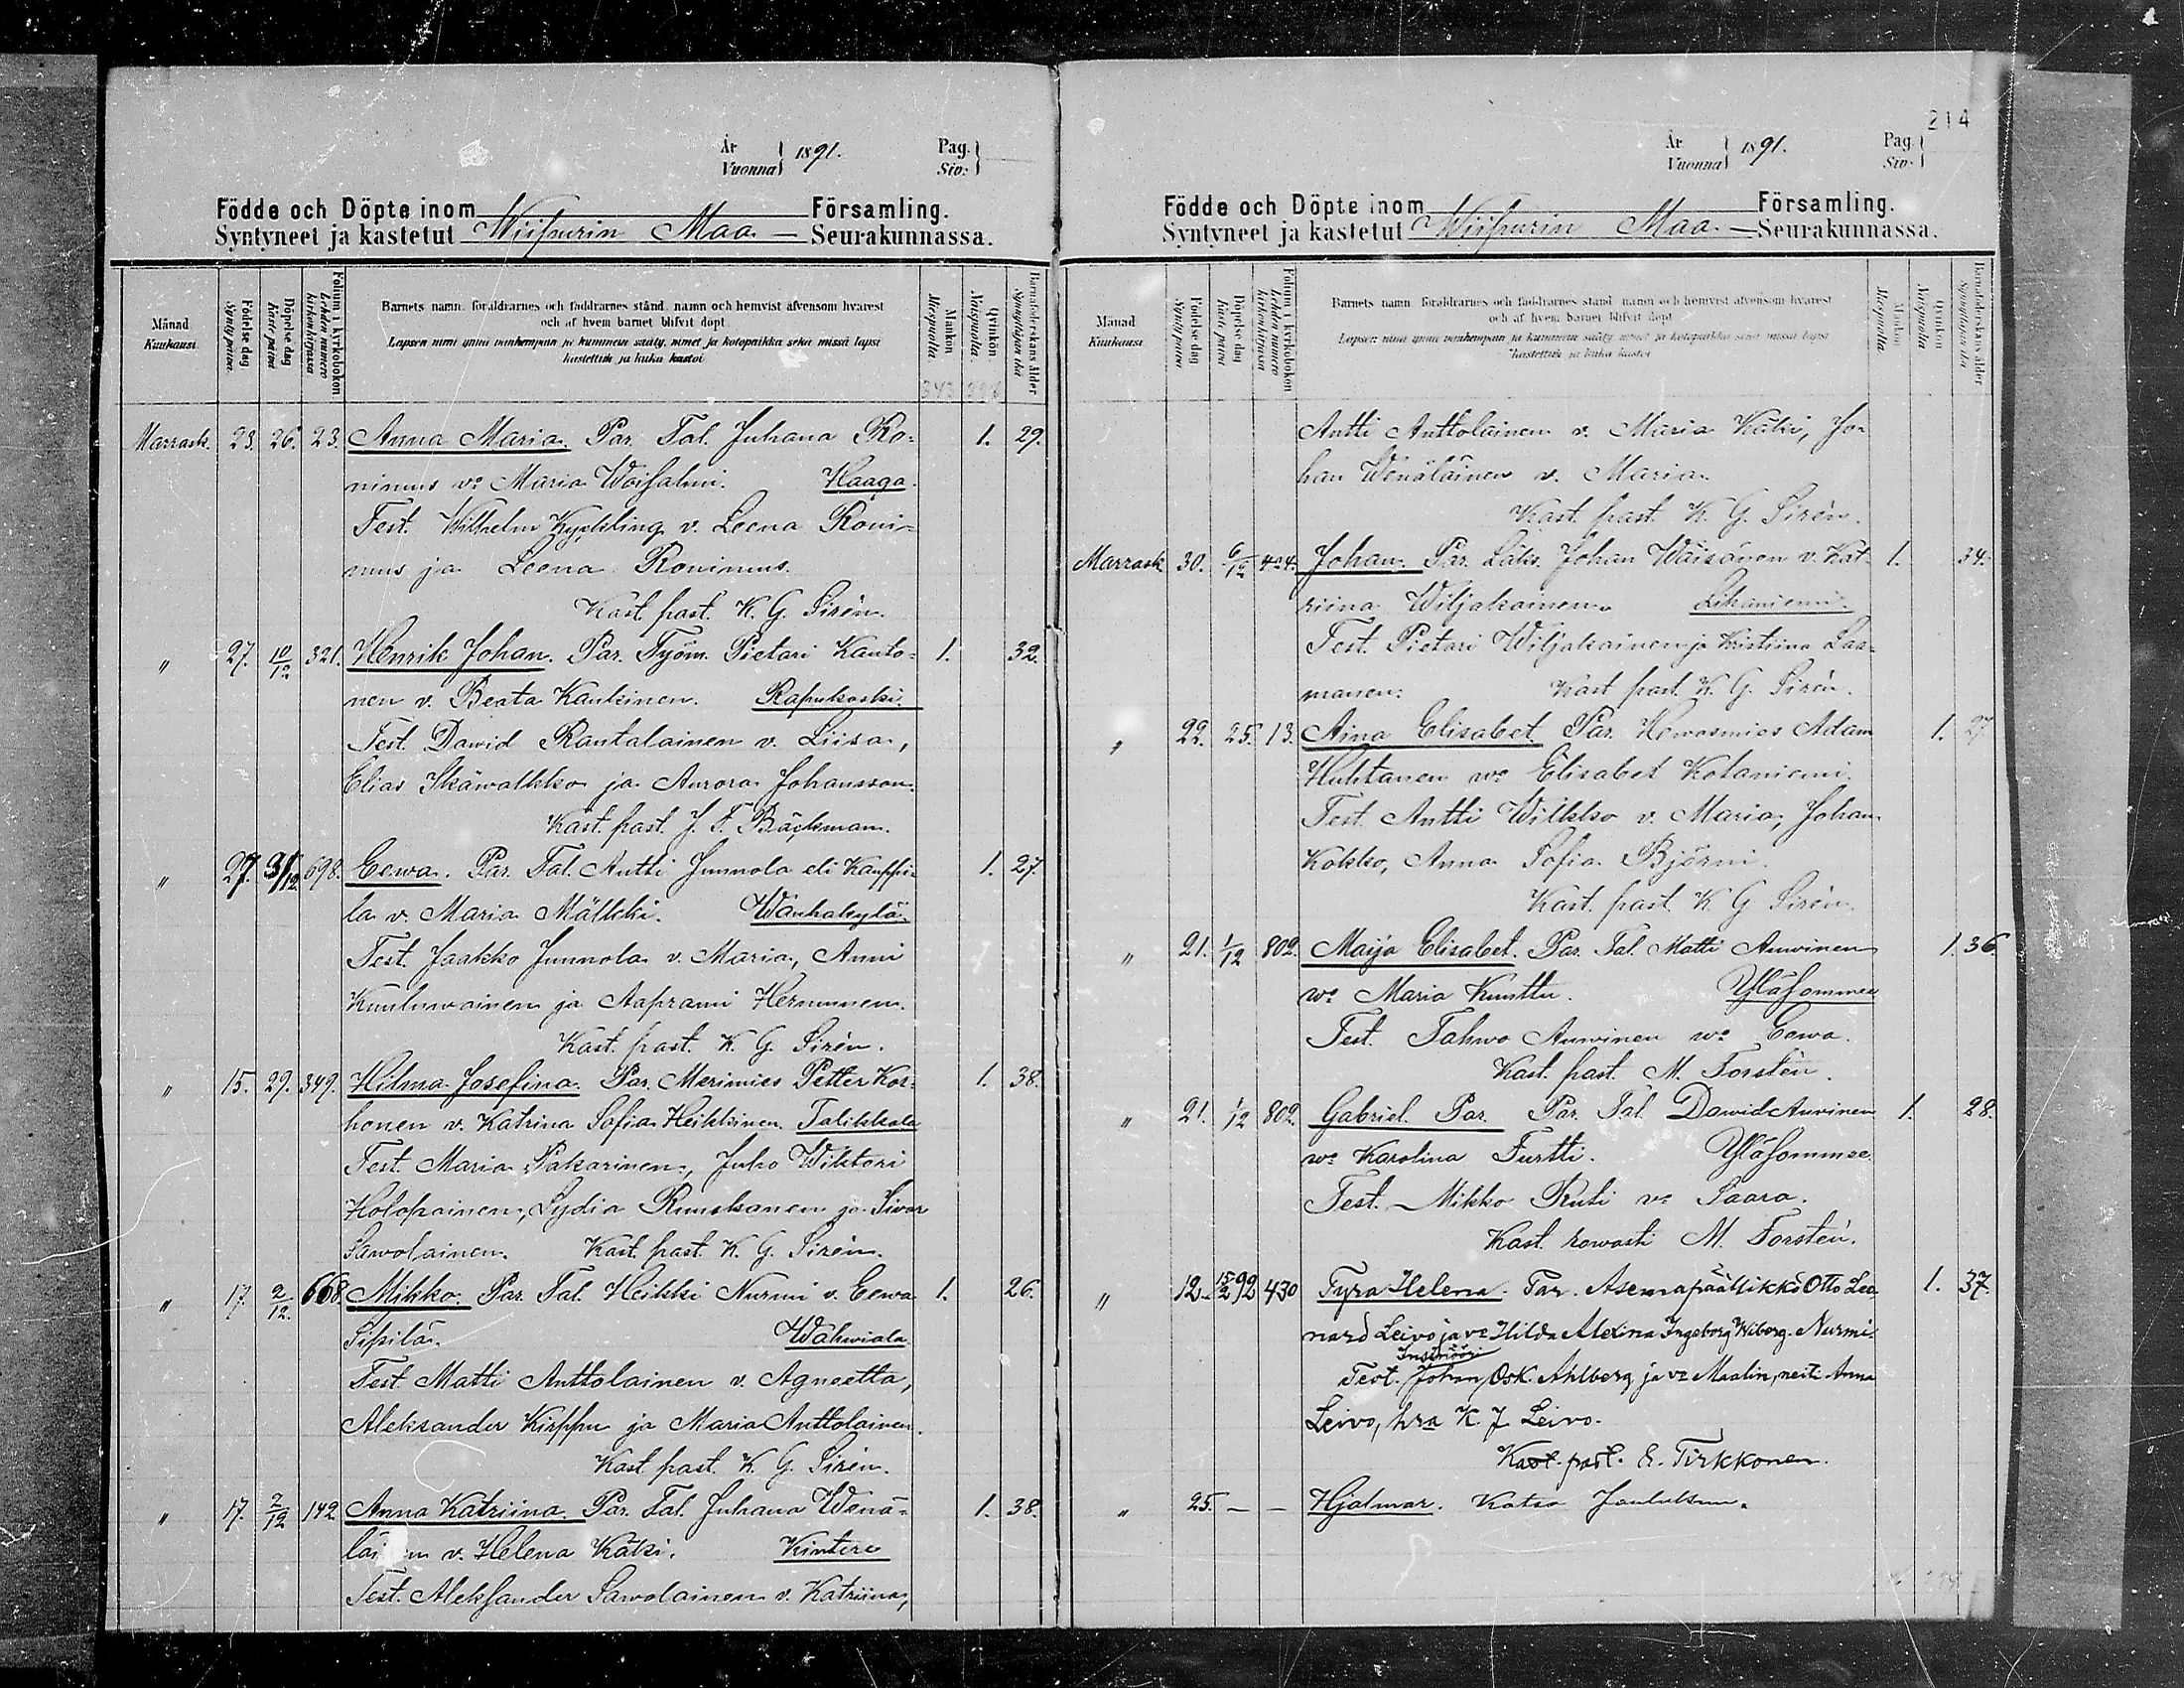 År
Vuonna } 1891.
Pag.
Siv. }
Födde och Döpte inom Församling.
Syntyneet ja kastetut Wiipurin Maa — Seurakunnassa.
Månad
Kuukausi
Födelse dag
Synty päivä.
Döpelse dag
Kaste päivä
Folium i kyrkobokon
Lehden numero
kirkonkirjassa
Barnets namn, föräldrarnes och faddrarnes stånd, namn och hemvist äfvensom hvarest
och af hvem barnet blifvit döpt.
Lapsen nimi ynnä vanhempain ja kummein sääty, nimet ja kotopaikka sekä missä lapsi
kastettiin ja kuka kastoi
Mankön
Miespuolia.
Qvinkön
Naispuolia.
Barnaföderskans ålder
Synnyttäjän ikä
Marrask. 23. 26. 23. Anna Maria. Par. Tal. Juhana Ro- 1. 29.
nimus v:o Maria Woisalmi. Haaga.
Test. Wilhelm Kyckling v. Leena Roni-
mus ja Leena Ronimus.
Kast. past. K. G. Sirén.
" 27. 10/12 321. Henrik Johan. Par. Työm. Pietari Kanto- 1. 32.
nen v. Beata Kaukinen. Rapukoski.
Test. Dawid Rantalainen v. Liisa,
Elias Skäwalkko ja Aurora Johansson.
Kast. past. J. F. Bäckman.
" 27. 3/12 698. Eewa. Par. Tal. Antti Junnola eli Kauppi- 1. 27.
la v. Maria Mälkki. Wanhakylä.
Test. Jaakko Junnola v. Maria, Anni
Kuuluwainen ja Aaprami Hernunen.
Kast. past. K. G. Sirén.
" 15. 29. 349. Hilma Josefina. Par. Merimies Petter Kor- 1. 38.
honen v. Katrina Sofia Heikkinen. Talikkala
Test. Maria Pakarinen, Juho Wiktori
Holopainen, Lydia Ruuskanen ja Siver
Sawolainen. Kast. past. K. G. Sirén.
" 17. 2/12. 668. Mikko. Par. Tal. Heikki Nurmi v. Eewa 1. 26.
Sipilä. Wahwiala
Test. Matti Anttolainen v. Agneetta,
Aleksander Kirppu ja Maria Anttolainen.
Kast. past. K. G. Sirén.
" 17. 2/12 142. Anna Katriina. Par. Tal. Juhana Wenä- 1. 38.
läinen v. Helena Kätki. Kintere
Test. Aleksander Sawolainen v. Katriina,
214
År
Vuonna } 1891.
Pag.
Siv. }
Födde och Döpte inom Församling.
Syntyneet ja kastetut Wiipurin Maa. — Seurakunnassa.
Månad
Kuukausi
Födelse dag
Synty päivä
Döpelse dag
Kaste päivä
Folium i kyrkobokon
Lehden numero
kirkonkirjassa
Barnets namn, föräldrarnes och faddrarnes stånd, namn och hemvist äfvensom hvarest
och af hvem barnet blifvit döpt
Lapsen nimi ynnä vanhempain ja kummein sääty, nimet ja kotopaikka sekä missä lapsi
kastettiin ja kuka kastoi
Mankön
Miespuolia
Qvinkön
Naispuolia
Barnaföderskans ålder
Synnyttäjän ikä
Antti Anttolainen v. Maria Kätki, Jo-
han Wenäläinen v. Maria.
Kast. past. K. G. Sirén.
Marrask. 30. 6/12 404. Johan. Par. Läks. Johan Wäisänen v. Kat- 1. 34.
riina Wiljakainen. Likaniemi.
Test. Pietari Wiljakainen ja Kristiina Laa-
manen. Kast. past. K. G. Sirén.
" 22. 25. 13. Aina Elisabet. Par. Hewosmies Adam 1. 27.
Huhtanen w:o Elisabet Kotaniemi.
Test. Antti Wilkko v. Maria, Johan
Kokko, Anna Sofia Björni.
Kast. past. K. G. Sirén.
" 21. 1/12 802. Maija Elisabet. Par. Tal. Matti Auwinen 1. 36.
w:o Maria Kunttu. YläSommee
Test. Tahwo Auwinen w:o Eewa.
Kast. past. M. Forstén.
" 21. 1/12 802. Gabriel. Par. Par. Tal. Dawid Auvinen 1. 28.
w:o Karolina Turtti. YläSommee.
Test. Mikko Ruti v:o Saara.
Kast. rowasti M. Forstén.
" 12. 15/2 92 430 Tyra Helena. Par. Asemapäällikkö Otto Leo- 1. 37.
nard Leivo ja v:o Hilda Alexina Ingeborg Wiberg. Nurmi.
Insinööri
Test. Johan Osk. Ahlberg ja v:o Maalin, neiti Anna
Leivo, hra K. J. Leivo.
Kast. past. E. Tirkkonen.
" 25. — — Hjalmar. Katso Joulukuu.